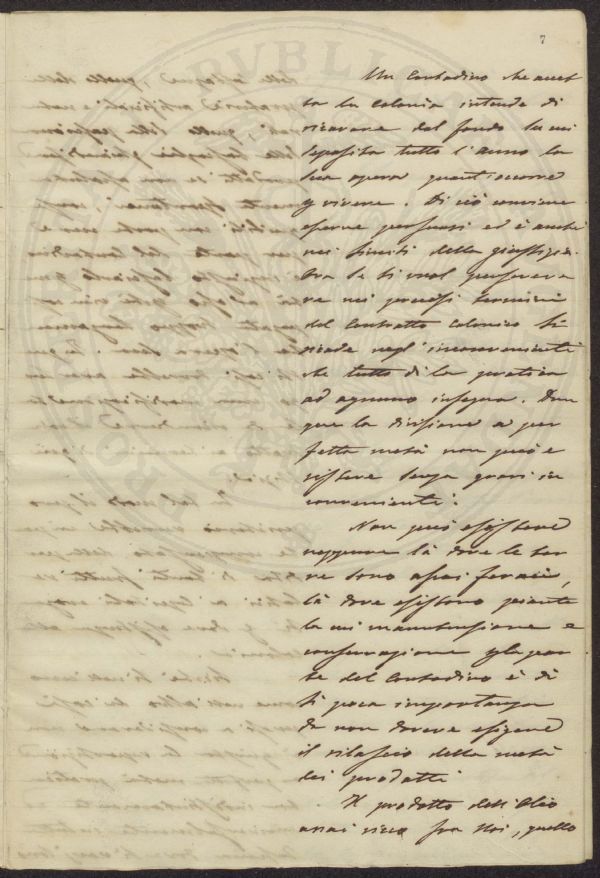 7
Un Contadino che accet
ta la Colonia intende di
ricavare dal fondo la cui
deposita tutto l'anno la
sua opera quanti occorre
p vivere. Di ciò conviene
esserne persuasi ed è anche
nei limiti della giustizia.
Ora se si vuol perseverа
re nei precisi termini
del Contratto Colonico si
ricade negl'inconvenienti
che tutto dì la pratica
ad ognuno insegna. Dun
que la divisione a per
fetta metà non può e
sistere senza gravi in
convenienti.
Non può esistere
neppure là dove le ter
re sono assai feraci,
là dove esistono piante
la cui manutensione e
conservazione p la par
te del Contadino è di
sì poca importanza
da non dovere esigere
il rilascio della metà
dei prodotti.
Il prodotto dell'Olio
assai ricco fra Noi, quello